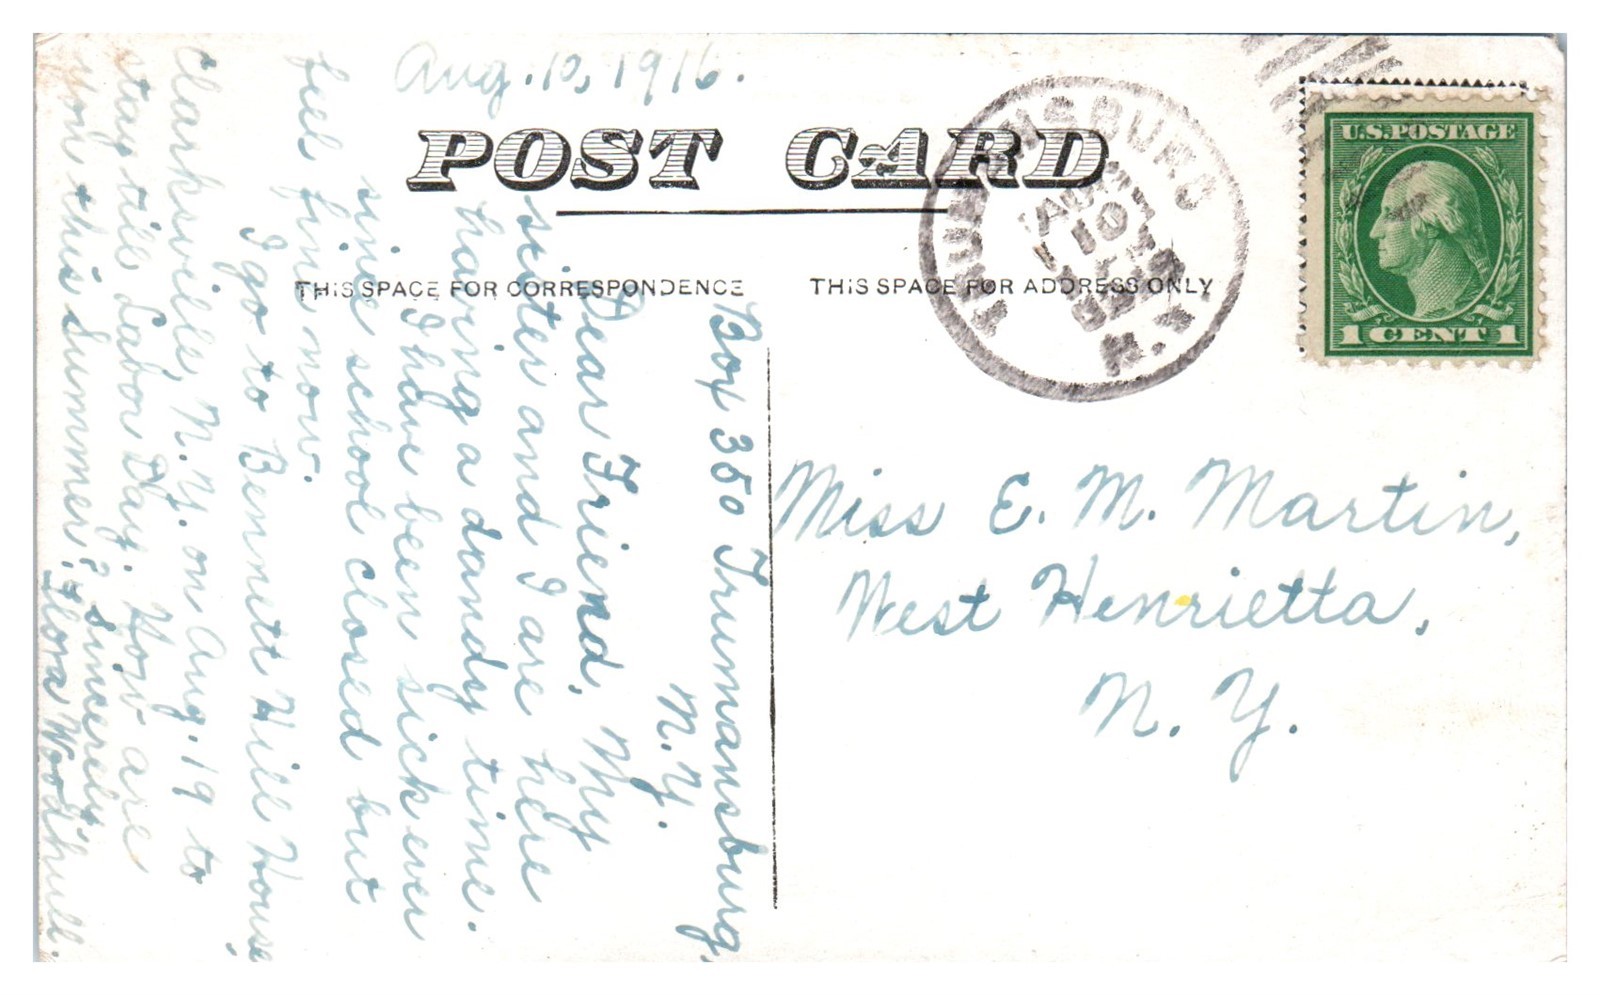 Aug. 10, 1916.
POST CARD
THIS SPACE FOR CORRESPONDENCE
THIS SPACE FOR ADDRESS ONLY
TRUMANSBURG
AUG
10
N.Y.
U.S. POSTAGE
1 CENT 1
Box 350 Trumansburg,
N.Y.
Dear Friend, My
sister and I are here
having a dandy time.
I have been sick ever
sine school closed but
fiel fine now.
I go to Bennett Hill House,
Clarksville, N.Y. on Aug. 19 to
stay till Labor Day. How are
you this summer? Sincerely,
Flora Woodhull.
Miss E. M. Martin,
West Henrietta,
N. Y.